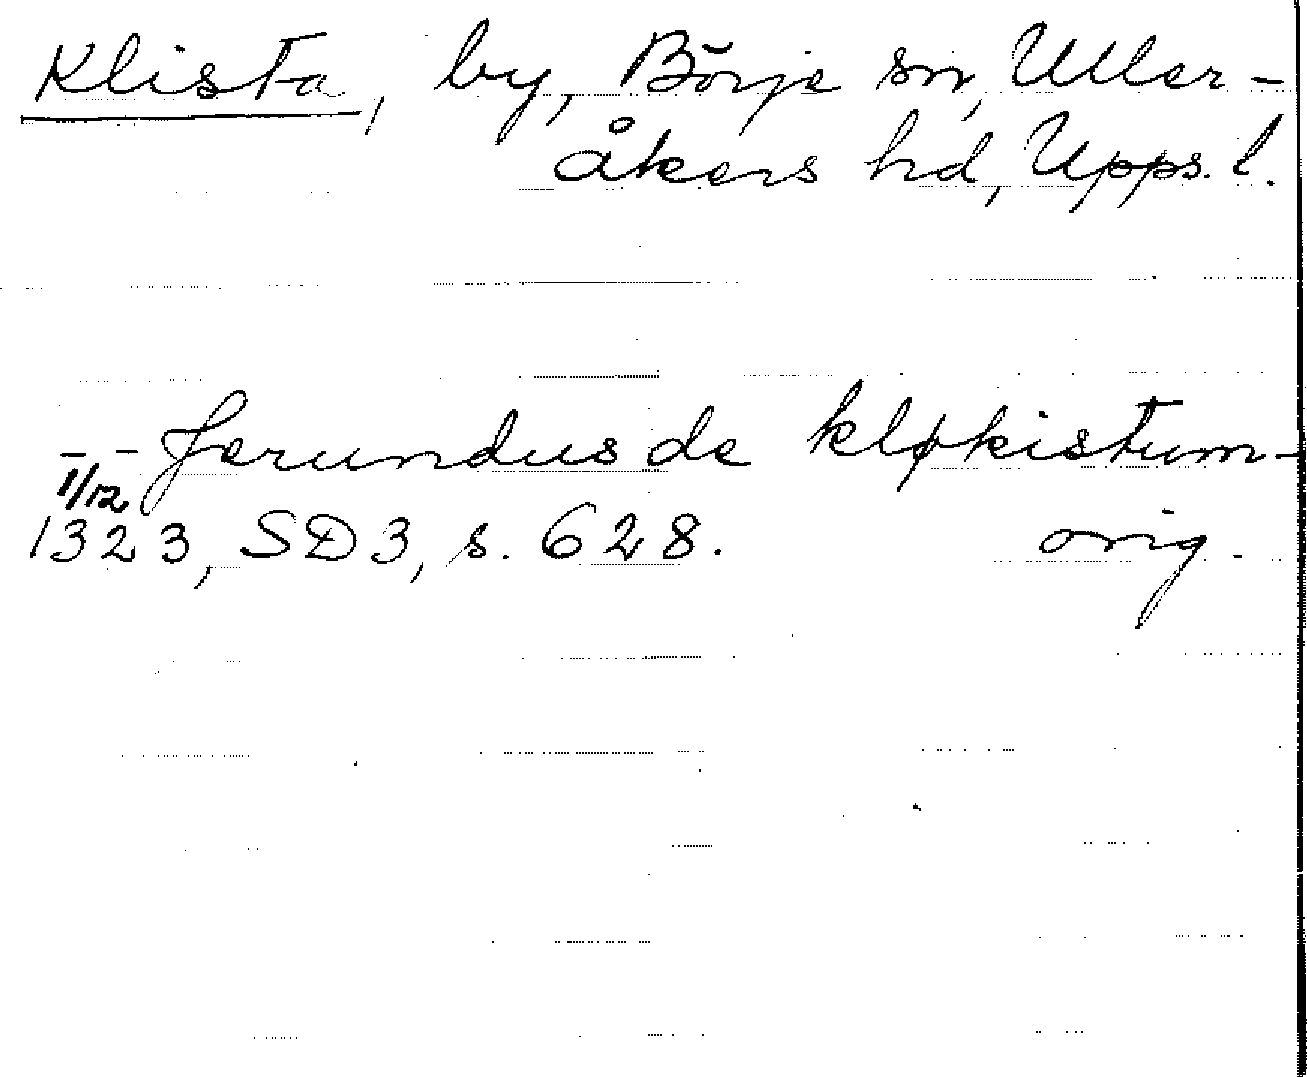 Klista, by, Börje sn, Uller-
åkers hd, Upps. l.
– – Jerundus de kløkistum –
1/12
1323, SD3, s. 628. orig.